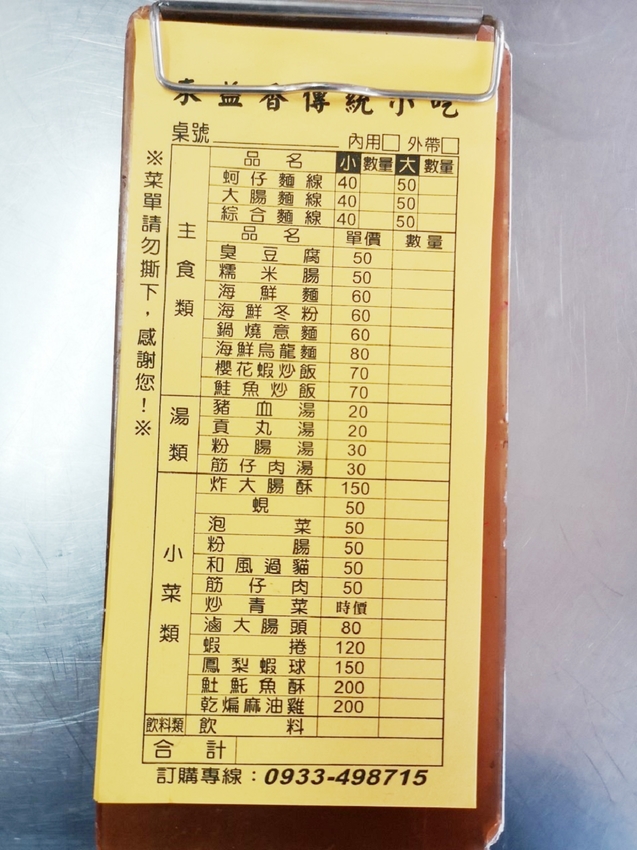 益香傳統小吃
桌號 內用□ 外帶□
※菜單請勿撕下，感謝您！※
主食類
品名 小 數量 大 數量
蚵仔麵線 40 50
大腸麵線 40 50
綜合麵線 40 50
品名 單價 數量
臭豆腐 50
糯米腸 50
海鮮麵 60
海鮮冬粉 60
鍋燒意麵 60
海鮮烏龍麵 80
櫻花蝦炒飯 70
鮭魚炒飯 70
湯類
豬血湯 20
貢丸湯 20
粉腸湯 30
筋仔肉湯 30
小菜類
炸大腸酥 150
蜆 50
泡菜 50
粉腸 50
和風過貓 50
筋仔肉 50
炒青菜 時價
滷大腸頭 80
蝦捲 120
鳳梨蝦球 150
魠魚酥 200
乾煸麻油雞 200
飲料類 飲料
合計
訂購專線：0933-498715